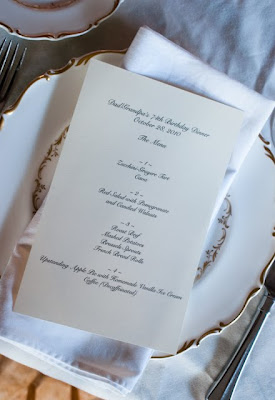 Dad/Grandpa's 74th Birthday Dinner
October 28, 2010
The Menu
~ 1 ~
Zucchini Gruyere Tart
Cava
~ 2 ~
Red Salad with Pomegranate
and Candied Walnuts
~ 3 ~
Roast Beef
Mashed Potatoes
Brussels Sprouts
French Bread Rolls
~ 4 ~
Upstanding Apple Pie with Homemade Vanilla Ice Cream
Coffee (Decaffeinated)